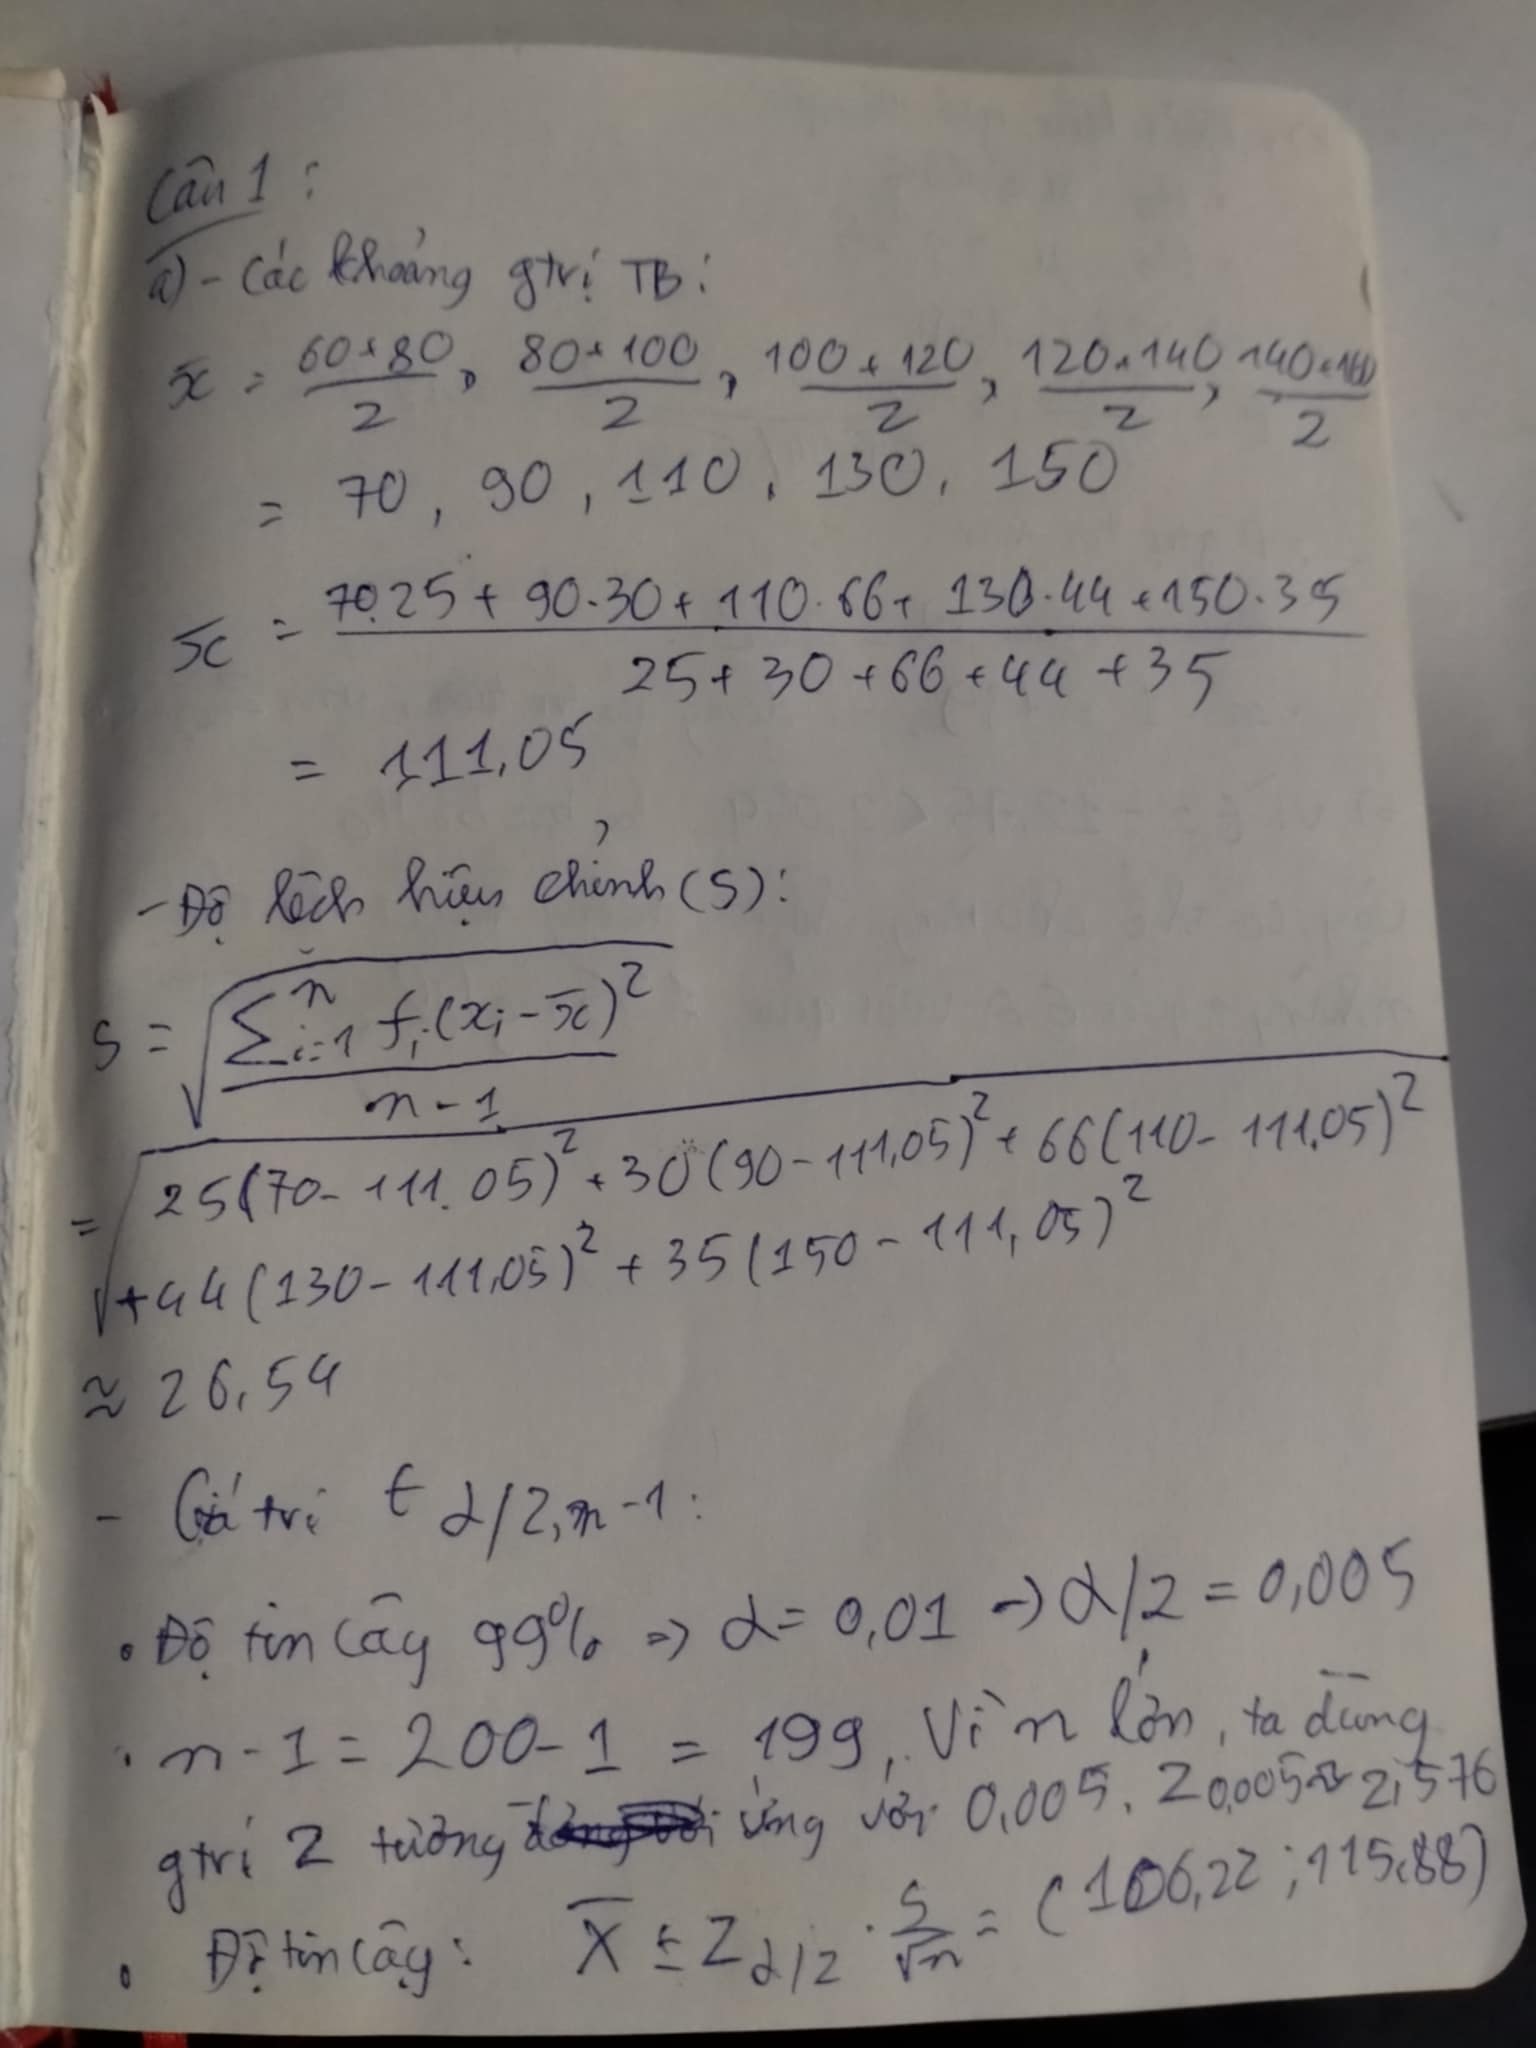 Câu 1:
a) - Các khoảng gtrị TB:
x̄ = (60+80)/2, (80+100)/2, (100+120)/2, (120+140)/2, (140+160)/2
= 70, 90, 110, 130, 150
x̄ = (70.25 + 90.30 + 110.66 + 130.44 + 150.35)/(25 + 30 + 66 + 44 + 35)
= 111,05
- Độ lệch hiệu chỉnh (S):
s = √((∑ⁿᵢ₌₁ fᵢ(xᵢ - x̄)²)/(n-1))
= √(25(70-111.05)² + 30(90-111,05)² + 66(110-111,05)²
+44(130-111,05)² + 35(150-111,05)²
≈ 26,54
- Giá trị t α/2, n-1:
• Độ tin cậy 99% => α = 0,01 → α/2 = 0,005
• n-1 = 200-1 = 199, Vì n lớn, ta dùng
gtrị Z tương ứng với 0,005. Z 0,005 ≈ 2,576
• Độ tin cậy: X̄ ± Z α/2 . S/√n = (106,22; 115,88)